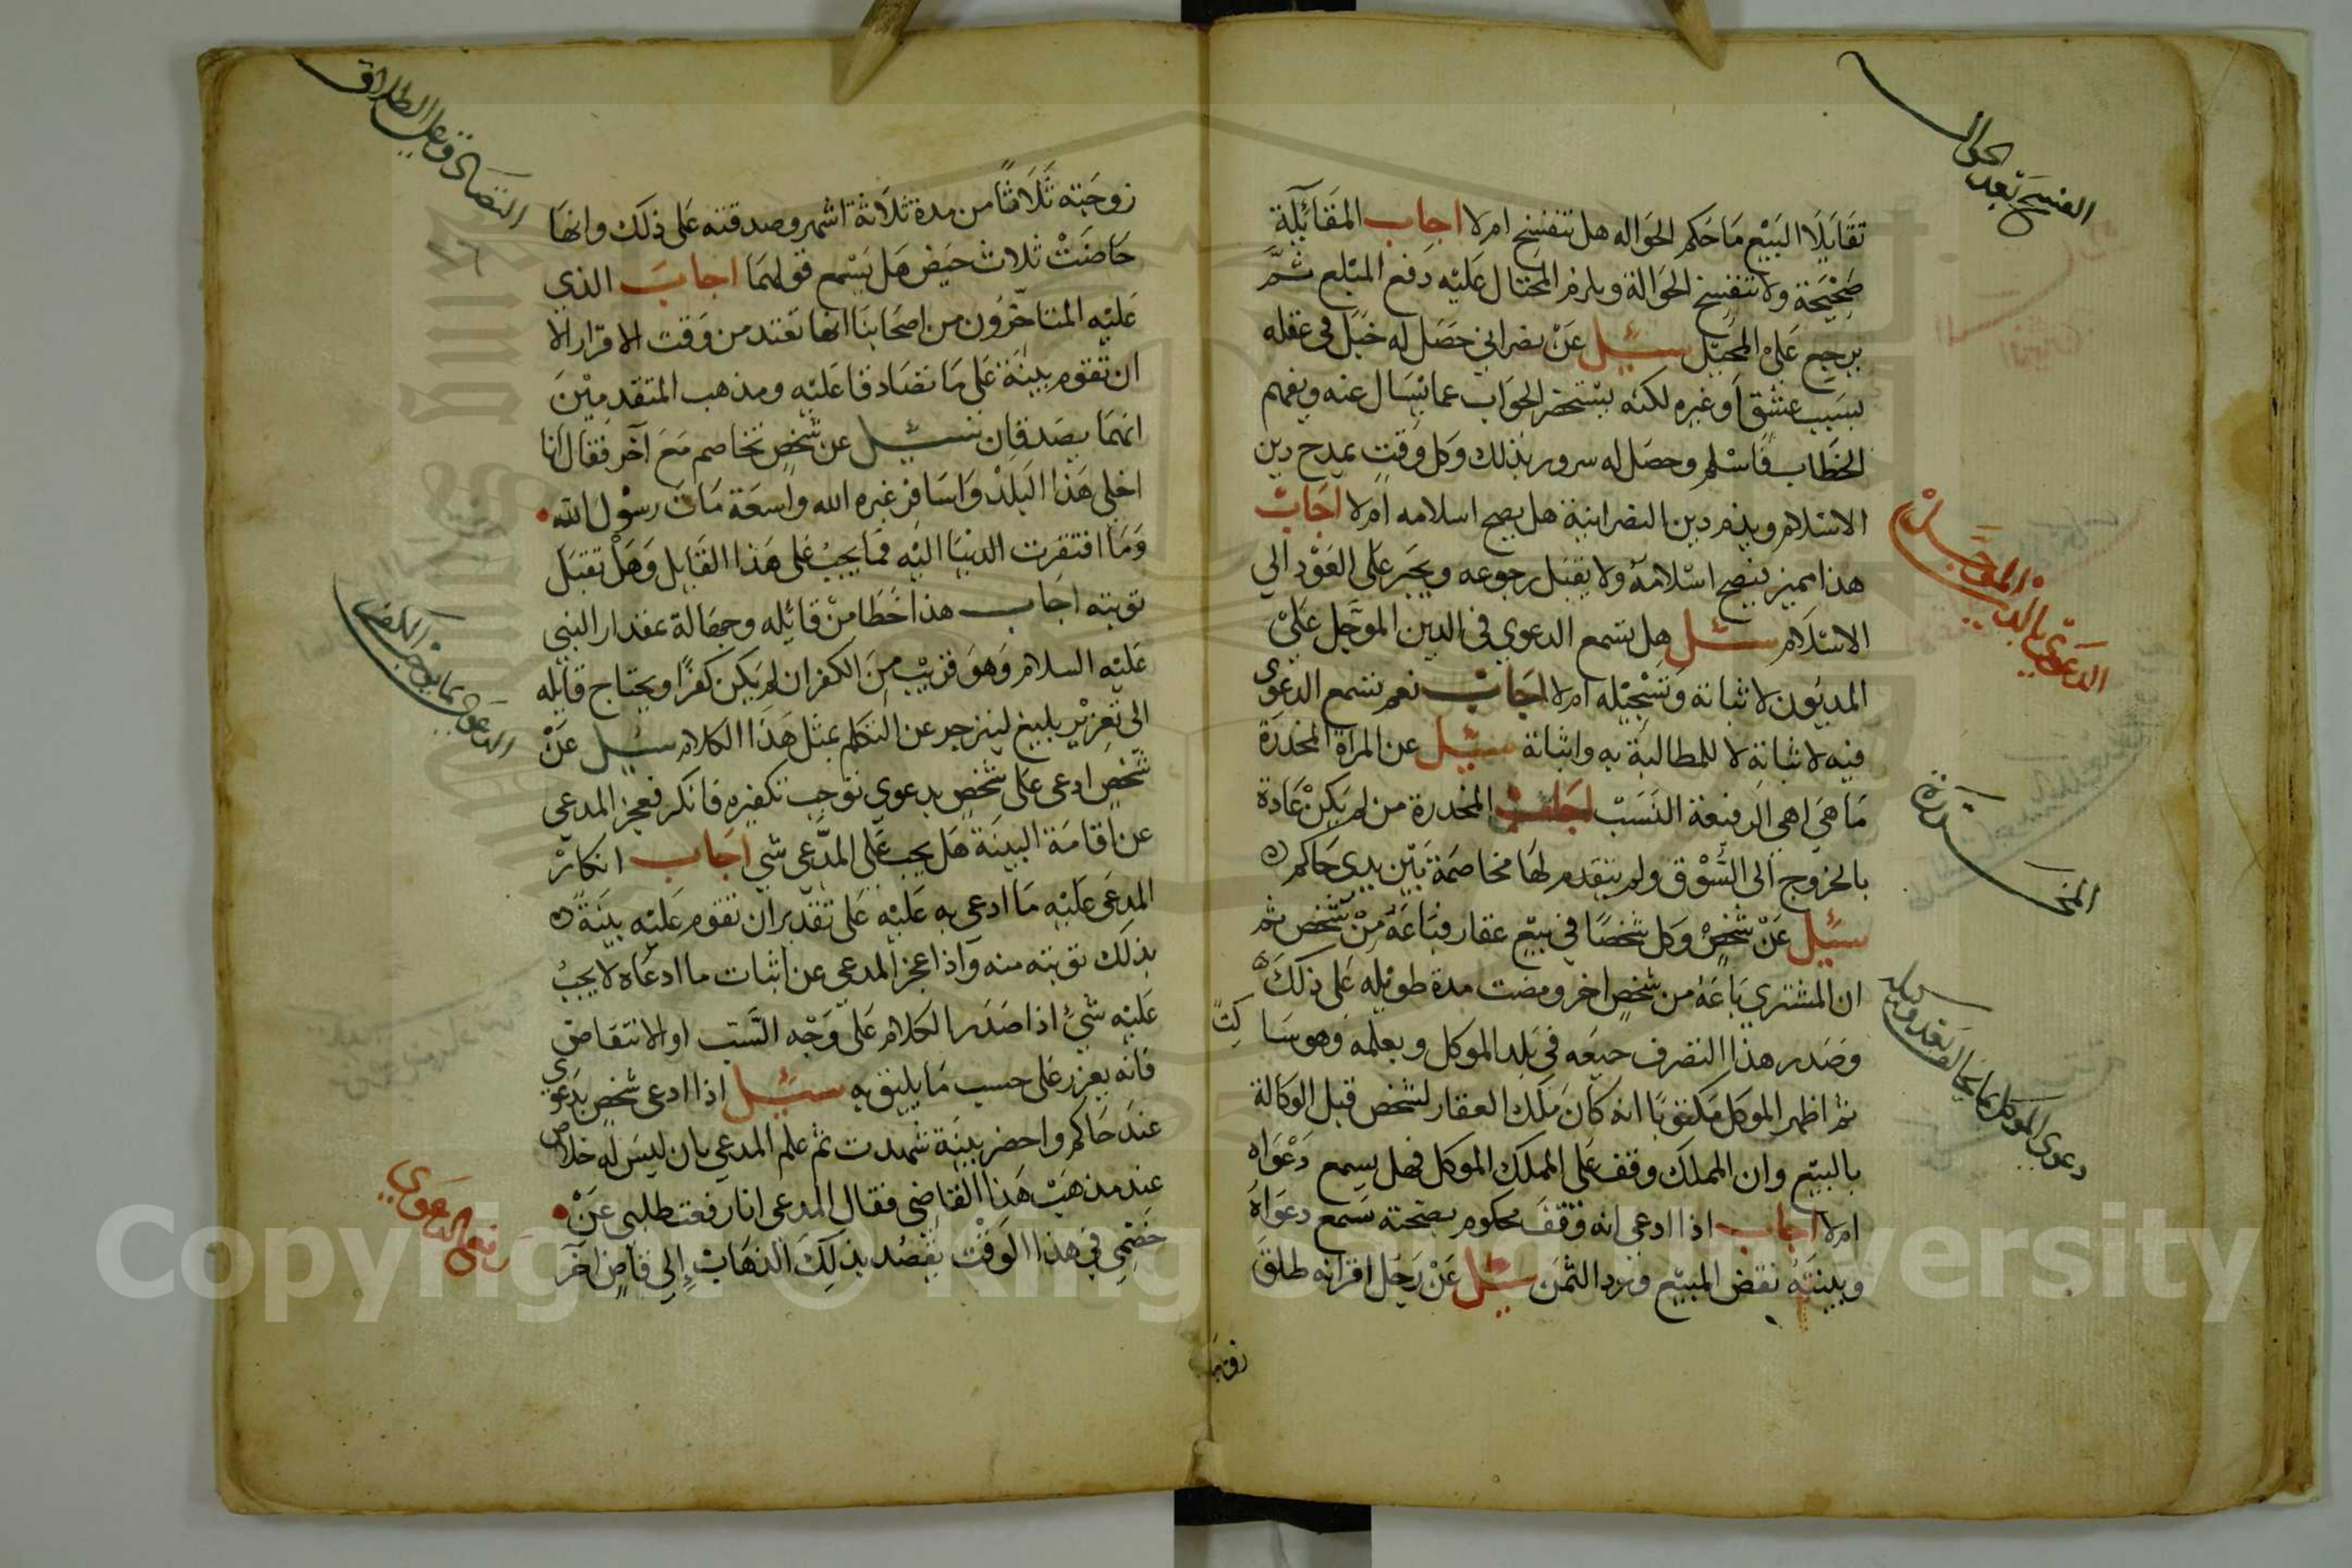 الفسخ بعد الحوال
تقايلا البيع ما حكم الحواله هل تنفسخ ام لا اجاب المقائلة
صحيحة ولا تنفسخ الحوالة ويلزم المحتال عليه دفع المبلغ ثم
يرجع على المحيل سئيل عن نصراني حصل له خبل في عقله
بسبب عشق او غيره لكنه يستحضر الجواب عما يسال عنه ويفهم
الخطاب فاسلم وحصل له سرور بذلك وكل وقت يمدح دين
الاسلام ويذم دين النصرانية هل يصح اسلامه ام لا اجاب
هذا مميز يصح اسلامه ولا يقبل رجوعه ويجبر على العود الي
الاسلام سئل هل تسمع الدعوي في الدين الموجل على
الدعوي بالدين الموجل
المديون لاثباته وتسجيله ام لا اجاب نعم تسمع الدعوى
فيه لاثباته لا للمطالبة به واثباتة سئيل عن المراة المخدرة
ما هي اهي الرفيعة النسب اجاب المخدرة من لم يكن عادة
المخدرة
بالخروج الى السوق ولم يتقدم لها مخاصمة بين يدي حاكم
سئيل عن شخص وكل شخصا في بيع عقار فباعه من شخص ثم
ان المشتري باعه من شخص اخر ومضت مدة طويله على ذلك
وصدر هذا التصرف جميعه في بلد الموكل وبعلمه وهو ساكت
ثم اظهر الموكل مكتوبا انه كان ملك العقار لشخص قبل الوكالة
دعوى الموكل بما يخالف بعد وكيله
بالبيع وان المملك وقف على المملك الموكل فهل يسمع دعواه
ام لا اجاب اذا ادعي انه وقف محكوم بصحته تسمع دعواه
وبينته نقض المبيع ونرد الثمن سئيل عن رجل اقر انه طلق
زوجته
التصادق على الطلاق
زوجته ثلاثا من مدة ثلاثة اشهر وصدقته على ذلك وانها
حاضت ثلاث حيض هل يسمع قولهما اجاب الذي
عليه المتاخرون من اصحابنا انها تعتد من وقت الاقرار الا
ان تقوم بينة على ما تصادقا عليه ومذهب المتقدمين
انهما يصدقان سئيل عن شخص تخاصم مع آخر فقال انا
اخلي هذا البلد واسافر غيره الله واسعة مات رسول الله
وما افتقرت الدنيا اليه فما يجب على هذا القايل وهل تقبل
توبته اجاب هذا خطا من قائله وجهالة بمقدار النبي
عليه السلام وهو قريب من الكفر ان لم يكن كفرا ويحتاج قايله
الى تعزير بليغ لينزجر عن التكلم بمثل هذا الكلام سئيل عن
الدعوى بما يوجب الكفر
شخص ادعى على شخص بدعوي توجب تكفيره فانكر فعجز المدعي
عن اقامة البينة هل يجب على المدعي شي اجاب انكار
المدعى عليه ما ادعى به عليه على تقدير ان تقوم عليه بينة
بذلك توبته منه واذا عجز المدعي عن اثبات ما ادعاه لا يجب
عليه شئ اذا صدر الكلام على وجه السب او الانتقاص
فانه يعزر على حسب ما يليق به سئيل اذا ادعى شخص بدعوى
عند حاكم واحضر بينة شهدت ثم علم المدعي بان ليس له خلاص
عند مذهب هذا القاضي فقال المدعى انا رفعت طلبي عن
خصمي في هذا الوقت يقصد بذلك الذهاب إلى قاض آخر
رفع الدعوي
Copyright © King Saud University